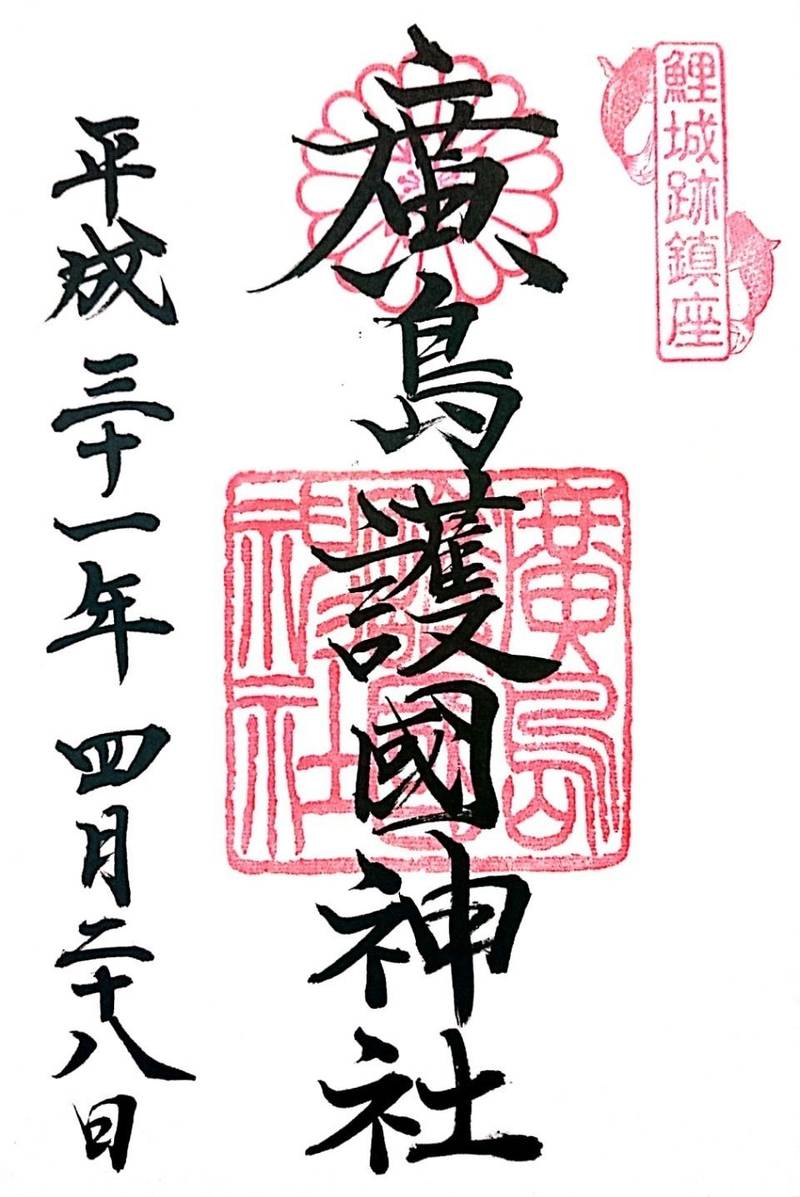 鯉城跡鎮座
廣島護國神社
廣島
護國
神社
平成三十一年四月二十八日